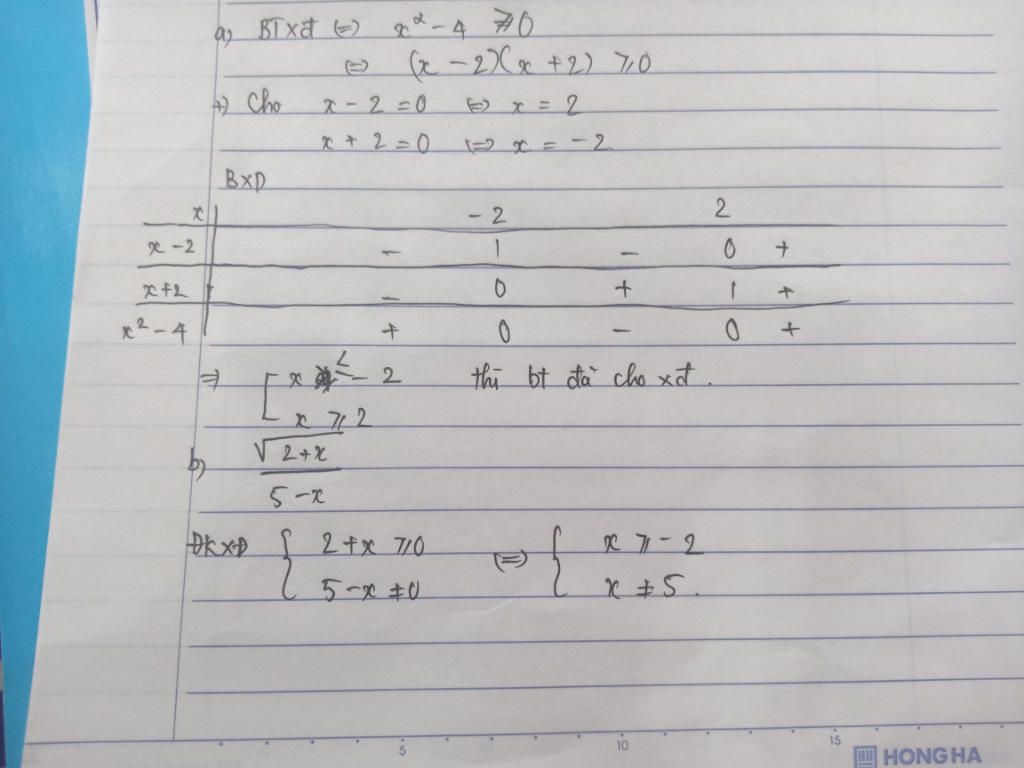 a, BTXĐ ⇔ x² - 4 ≥ 0
⇔ (x - 2)(x + 2) ≥ 0
+) Cho x - 2 = 0 ⇔ x = 2
x + 2 = 0 ⇔ x = -2
BXD
x -2 2
x - 2 - | - 0 +
x + 2 - 0 + | +
x² - 4 + 0 - 0 +
⇒ [ x ≤ -2 thì bt đã cho xđ.
x ≥ 2
b, √2+x
5 - x
ĐKXĐ { 2 + x ≥ 0 ⇔ { x ≥ -2
5 - x ≠ 0 x ≠ 5.
5 10 15
HH HONG HA